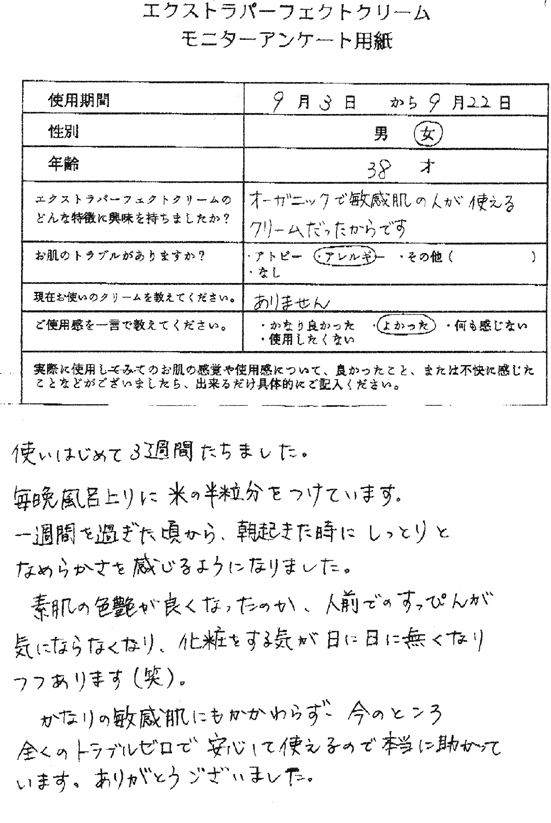 エクストラパーフェクトクリーム
モニターアンケート用紙
使用期間 9月3日 から9月22日
性別 男 女
年齢 38 才
エクストラパーフェクトクリームの
どんな特徴に興味を持ちましたか？
オーガニックで敏感肌の人が使える
クリームだったからです
お肌のトラブルがありますか？
・アトピー ・アレルギー ・その他（ ）
・なし
現在お使いのクリームを教えてください。 ありません
ご使用感を一言で教えてください。
・かなり良かった ・よかった ・何も感じない
・使用したくない
実際に使用してみてのお肌の感覚や使用感について、良かったこと、または不快に感じた
ことなどがございましたら、出来るだけ具体的にご記入ください。
使いはじめて3週間たちました。
毎晩風呂上りに米の半粒分をつけています。
一週間を過ぎた頃から、朝起きた時にしっとりと
なめらかさを感じるようになりました。
素肌の色艶が良くなったのか、人前でのすっぴんが
気にならなくなり、化粧をする気が日に日に無くなり
つつあります(笑)。
かなりの敏感肌にもかかわらず、今のところ
全くのトラブルゼロで安心して使えるので本当に助かって
います。ありがとうございました。